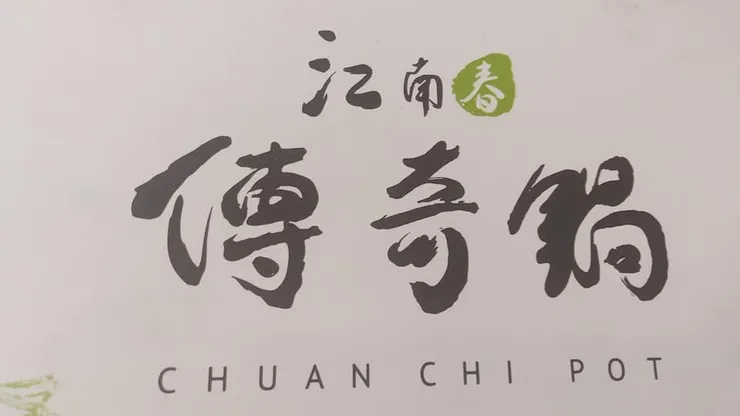 江南春
傳奇鍋
CHUAN CHI POT